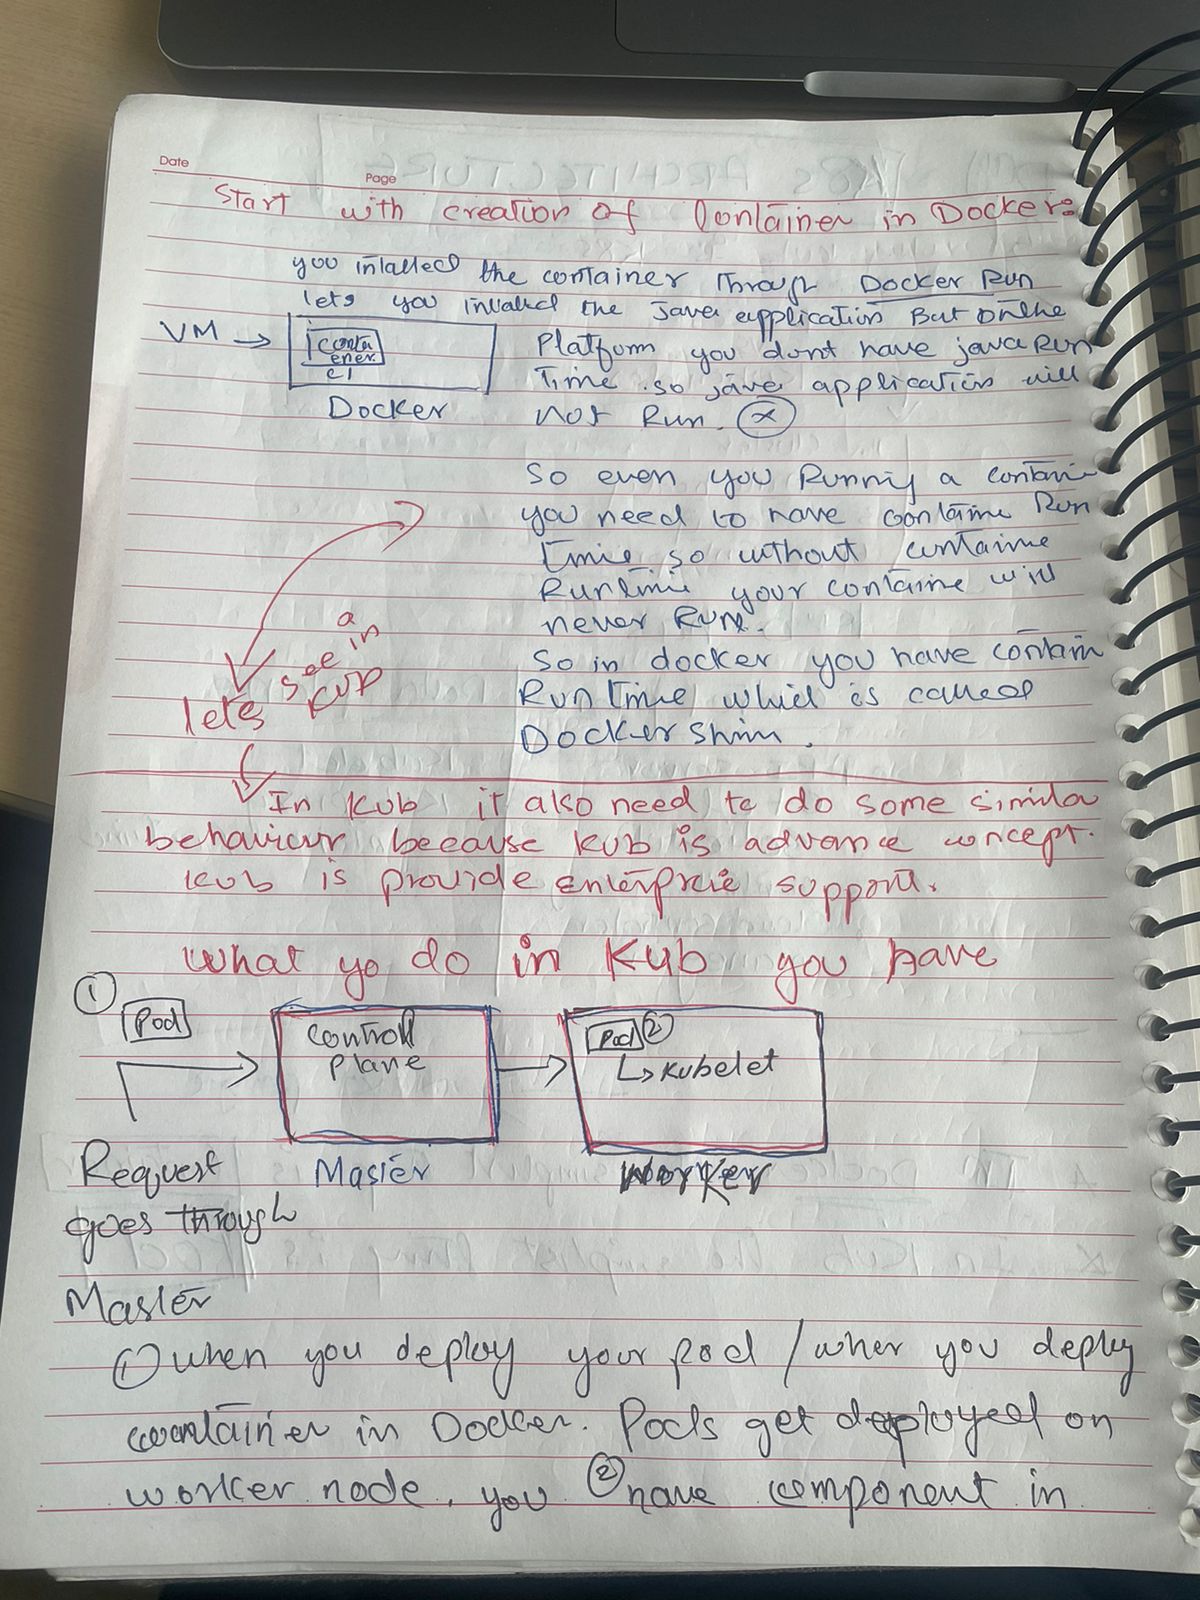 Date
Page
Start with creation of Container in Docker:
you intalled the container Through Docker Run
lets you intalled the Java application But on the
VM → Platform you dont have java Run
Conta
ener
C1
Time so java application will
Docker
not Run. x
So even you Runnig a contain
you need to have containe Run
time so without containe
Runtime your containe will
never Run.
So in docker you have contain
Run time which is called
Docker Shim.
lets see in a
Kub
In Kub it also need to do some simila
behaviour because Kub is advance concept.
Kub is provide Enterprie support.
What yo do in Kub you have
1
Pod
Controll
Plane
Pod 2
↳ Kubelet
Request
Master
Worker
goes Through
Master
1) When you deploy your Pod / when you deploy
container in Docker. Pods get deployed on
worker node. you 2 have component in